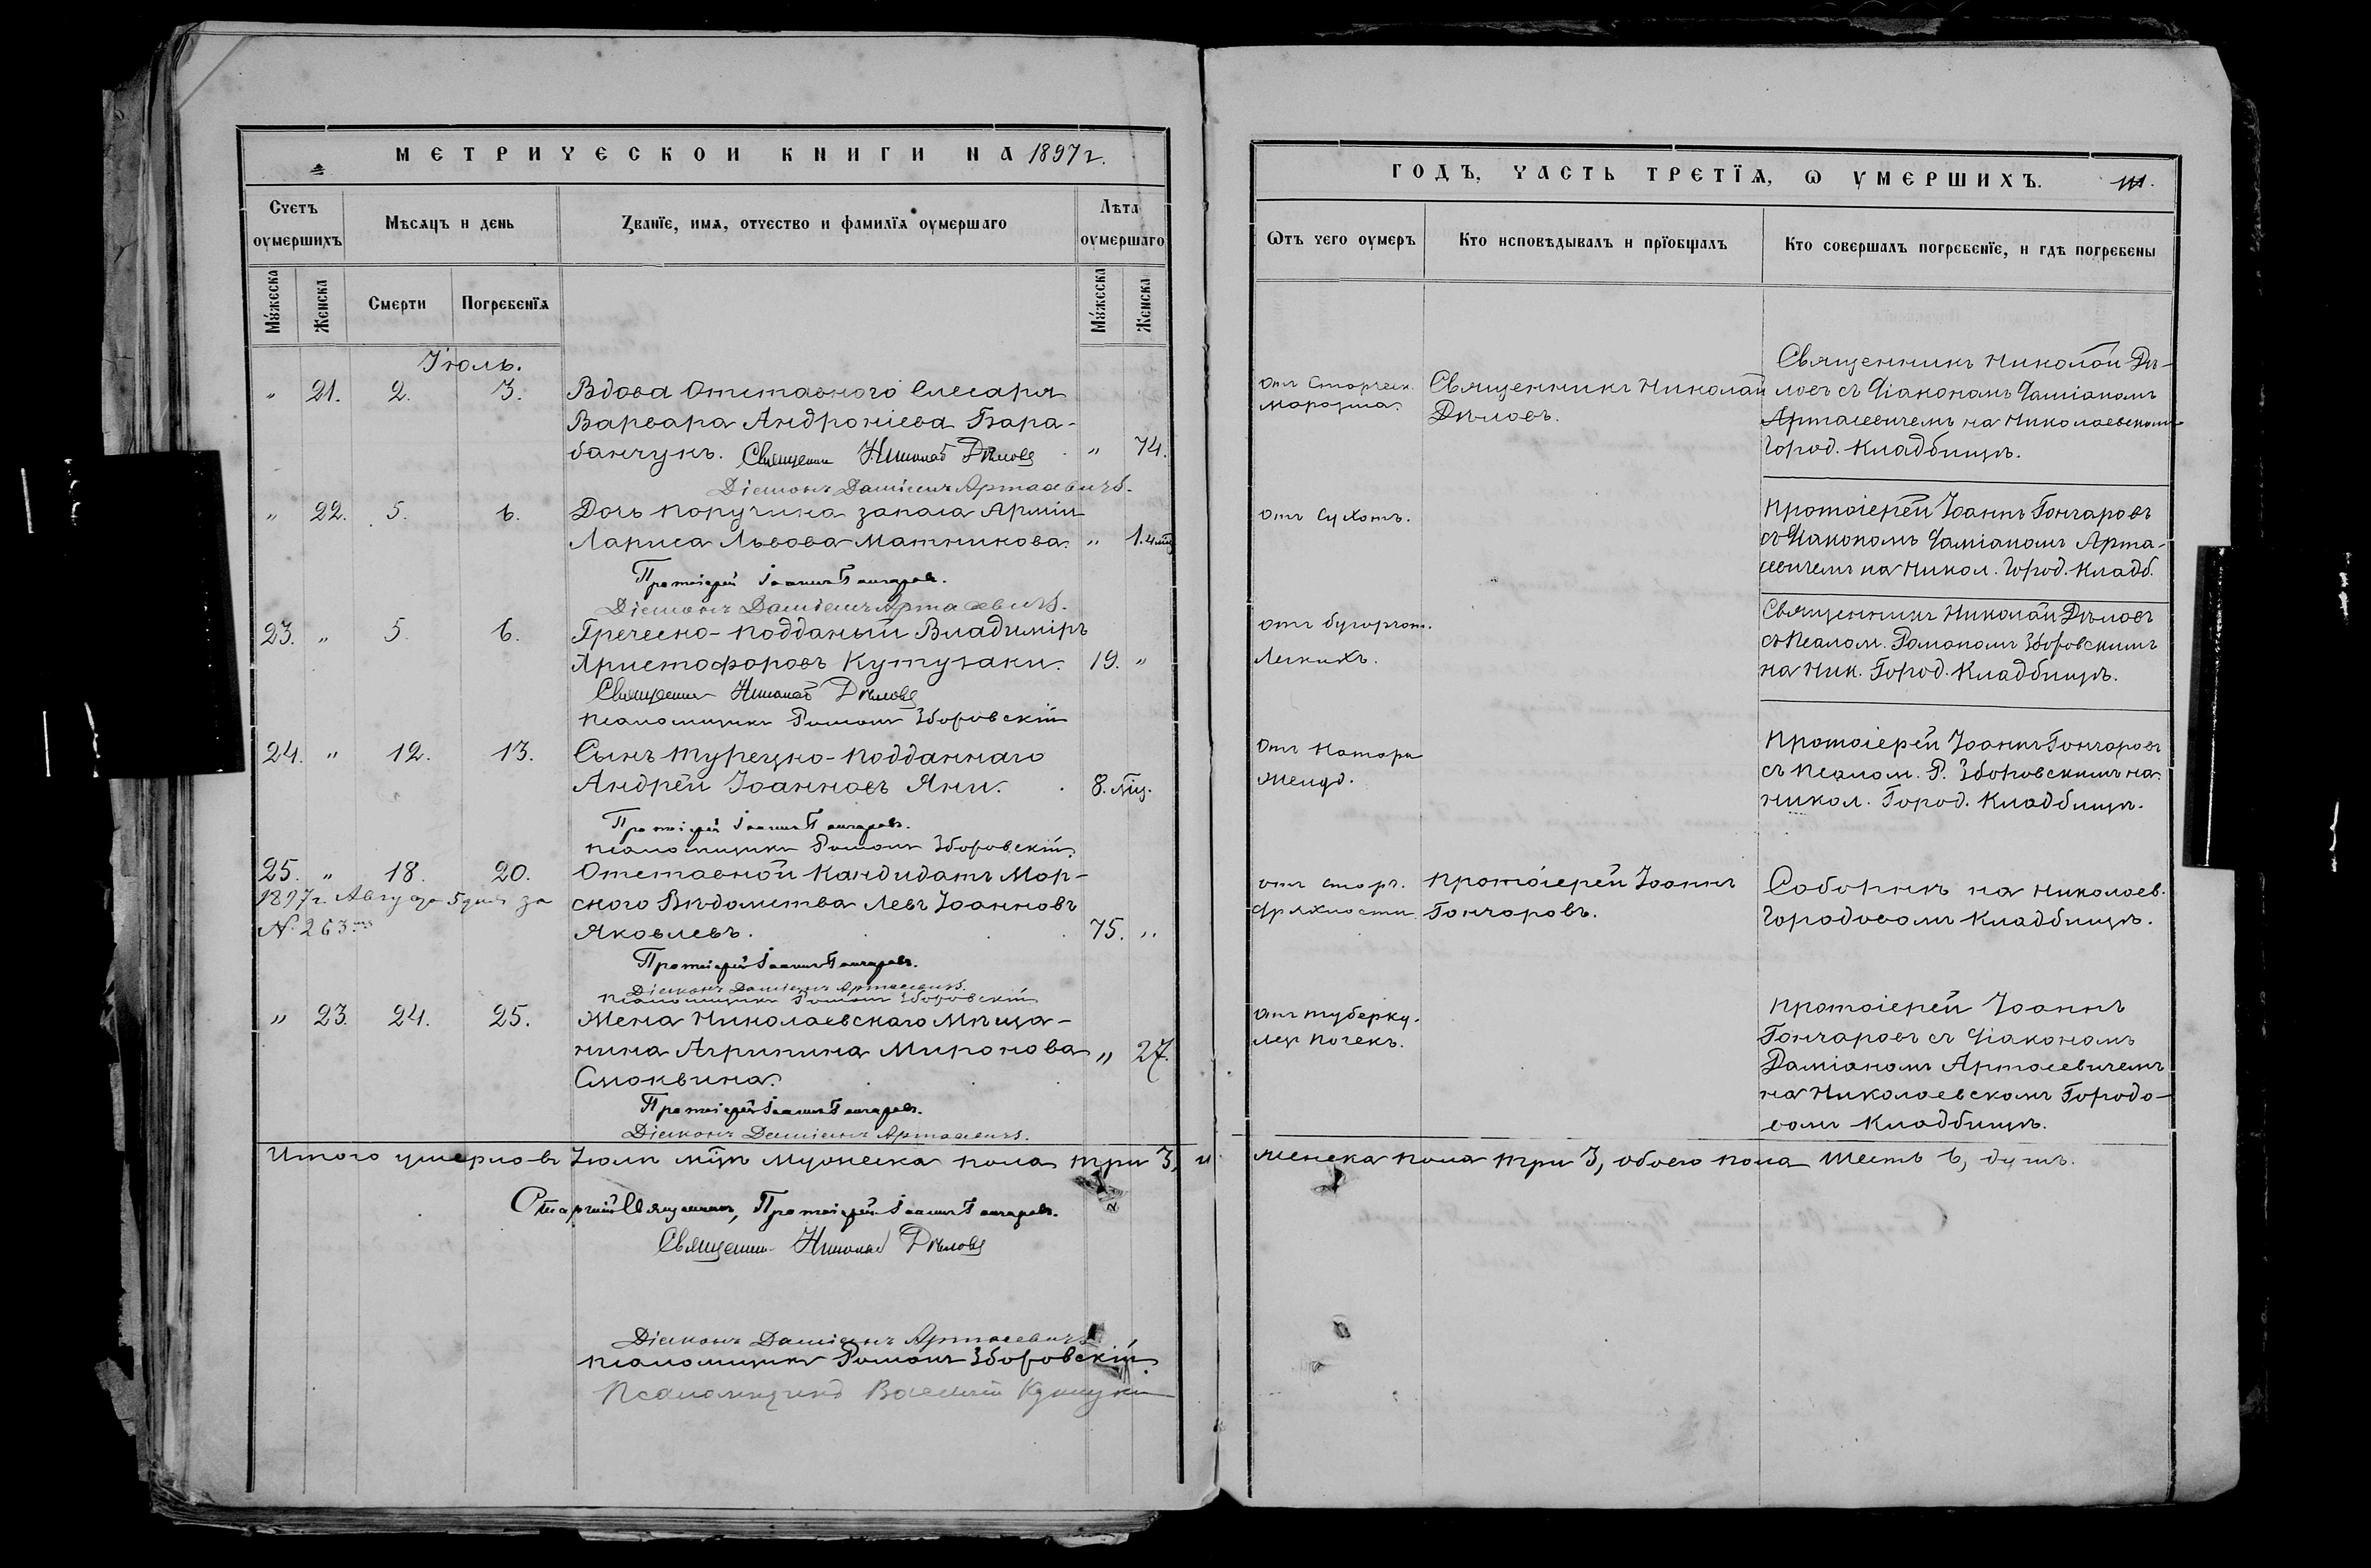 МЕТРИЧЕСКОИ КНИГИ НА 1897 г.
Счетъ оумершихъ
Мѣсяцъ и день
Званїе, имя, отчество и фамилїя оумершаго
Лѣта оумершаго
Мꙋжеска
Женска
Смерти
Погребенїя
Мꙋжеска
Женска
Іюль.
" 21. 2. 3. Вдова Отставного Слесаря
Варвара Андроніева Бара-
банчукъ. " 74.
Священник Николай Дѣловъ
Діаконъ Даміанъ Артасевичъ.
" 22. 5. 6. Дочь Поручика запаса Арміи
Лариса Львова Матникова. " 1. 4 мц
Протоіерей Іоаннъ Гончаровъ.
Діаконъ Даміанъ Артасевичъ.
23. " 5. 6. Греческо-подданый Владиміръ
Христофоровъ Кутузаки. 19. "
Священник Николай Дѣловъ
Псаломщикъ Романъ Зборовскій
24. " 12. 13. Сынъ турецко-подданнаго
Андрей Іоанновъ Яни. 8. мц.
Протоіерей Іоаннъ Гончаровъ.
Псаломщикъ Романъ Зборовскій.
25. " 18. 20. Отставной Кандидатъ Мор-
1897 г. Августа 5 дня за
скаго Вѣдомства Левъ Іоанновъ
№ 263
Яковлевъ. 75. "
Протоіерей Іоаннъ Гончаровъ.
Діаконъ Даміанъ Артасевичъ.
Псаломщикъ Романъ Зборовскій
" 23. 24. 25. Жена Николаевскаго Мѣща-
нина Агрипина Миронова " 27.
Смоквина.
Протоіерей Іоаннъ Гончаровъ.
Діаконъ Даміанъ Артасевичъ.
Итого умерло въ Іюлѣ мцѣ мужеска пола три 3, и
Старшій Священник, Протоіерей Іоаннъ Гончаровъ.
Священник Николай Дѣловъ
Діаконъ Даміанъ Артасевичъ
Псаломщикъ Романъ Зборовскій.
Псаломщикъ Василій
ГОДЪ, ЧАСТЬ ТРЕТЇЯ, Ѡ УМЕРШИХЪ.
Ѿтъ чего оумеръ
Кто исповѣдывалъ и прїобщалъ
Кто совершалъ погребенїе, и гдѣ погребены
отъ Старческ.
маразма.
Священникъ Николай
Дѣловъ.
Священникъ Николай Дѣ-
ловъ съ Діакономъ Даміаномъ
Артасевичемъ на Николаевскомъ
Город. Кладбищѣ.
отъ Сухотъ.
Протоіерей Іоаннъ Гончаровъ
съ Діакономъ Даміаномъ Арта-
севичемъ на Никол. Город. Кладб.
отъ бугорчат.
Легкихъ.
Священникъ Николай Дѣловъ
съ Псалом. Романомъ Зборовскимъ
на Ник. Город. Кладбищѣ.
Отъ Катара
Желуд.
Протоіерей Іоаннъ Гончаровъ
съ Псалом. Р. Зборовскимъ на
Никол. Город. Кладбищѣ.
отъ старч.
дряхлости
Протоіерей Іоаннъ
Гончаровъ.
Соборнѣ на Николаев.
Городовомъ Кладбищѣ.
отъ туберку.
леза Почекъ.
Протоіерей Іоаннъ
Гончаровъ съ Діакономъ
Даміаномъ Артасевичемъ
на Николаевскомъ Городо-
вомъ Кладбищѣ.
женска пола три 3, обоего пола шесть 6, душъ.